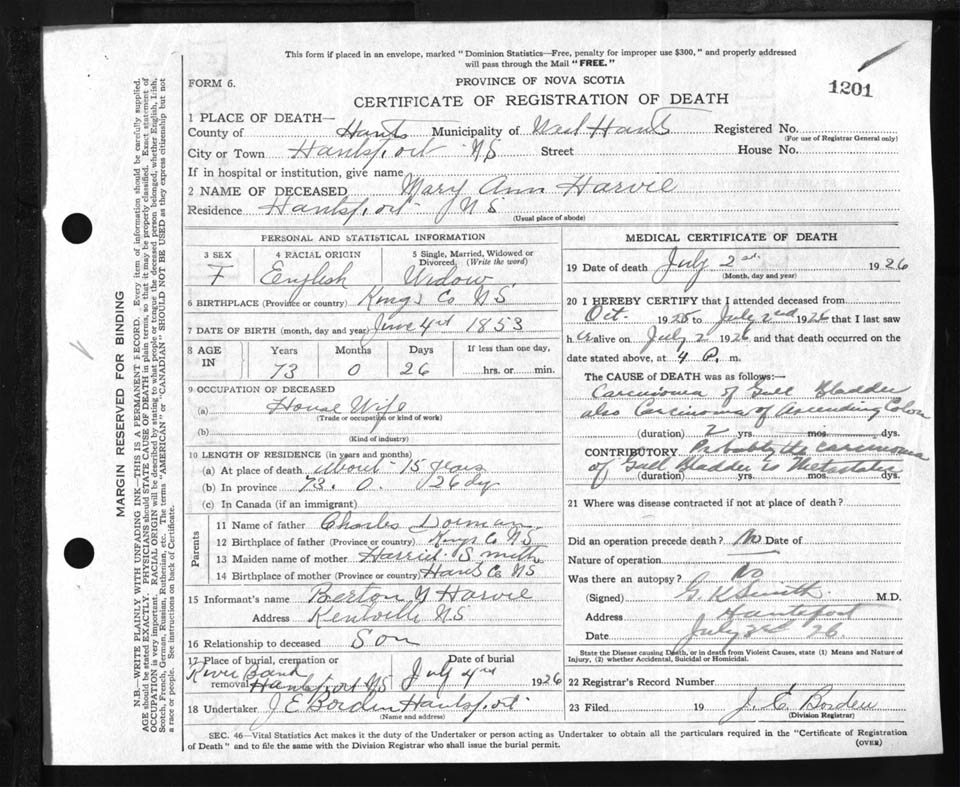 This form if placed in an envelope, marked "Dominion Statistics—Free, penalty for improper use $300," and properly addressed
will pass through the Mail "FREE."
FORM 6.
PROVINCE OF NOVA SCOTIA
1201
CERTIFICATE OF REGISTRATION OF DEATH
1 PLACE OF DEATH—
County of Hants Municipality of West Hants Registered No.
(For use of Registrar General only)
City or Town Hantsport N S Street House No.
If in hospital or institution, give name
2 NAME OF DECEASED Mary Ann Harvie
Residence Hantsport N S
(Usual place of abode)
PERSONAL AND STATISTICAL INFORMATION
3 SEX 4 RACIAL ORIGIN 5 Single, Married, Widowed or
Divorced. (Write the word)
F English Widow
6 BIRTHPLACE (Province or country) Kings Co N S
7 DATE OF BIRTH (month, day and year) June 4 1853
8 AGE IN Years Months Days If less than one day,
73 0 26 hrs. or min.
9 OCCUPATION OF DECEASED
(a) House Wife
(Trade or occupation or kind of work)
(b)
(Kind of industry)
10 LENGTH OF RESIDENCE (in years and months)
(a) At place of death About 15 years
(b) In province 73. 0. 26 dy
(c) In Canada (if an immigrant)
Parents
11 Name of father Charles Dorman
12 Birthplace of father (Province or country) Kings Co N S
13 Maiden name of mother Harriet Smith
14 Birthplace of mother (Province or country) Hants Co N S
15 Informant's name Berton Harvie
Address Kentville N.S
16 Relationship to deceased Son
17 Place of burial, cremation or Date of burial
River Bank
removal Hantsport N S July 4 1926
18 Undertaker J E Borden Hantsport
(Name and address)
MEDICAL CERTIFICATE OF DEATH
19 Date of death July 2nd 1926
(Month, day and year)
20 I HEREBY CERTIFY that I attended deceased from
Oct. 1925 to July 2nd 1926 that I last saw
her alive on July 2 1926 and that death occurred on the
date stated above, at 4 P. m.
The CAUSE OF DEATH was as follows:—
Carcinoma of Gall Bladder
also Carcinoma of Ascending Colon
(duration) 2 yrs. mos. dys.
CONTRIBUTORY Probably the carcinoma
of Gall Bladder is Metastatic
(duration) yrs. mos. dys.
21 Where was disease contracted if not at place of death?
Did an operation precede death? No Date of
Nature of operation
Was there an autopsy? no
(Signed) G. K Smith M.D.
Address Hantsport
Date July 3rd 26.
State the Disease causing Death, or in death from Violent Causes, state (1) Means and Nature of
Injury, (2) whether Accidental, Suicidal or Homicidal.
22 Registrar's Record Number
23 Filed 19 J. E. Borden
(Division Registrar)
SEC. 46—Vital Statistics Act makes it the duty of the Undertaker or person acting as Undertaker to obtain all the particulars required in the "Certificate of Registration
of Death" and to file the same with the Division Registrar who shall issue the burial permit.
(OVER)
MARGIN RESERVED FOR BINDING
N.B.—WRITE PLAINLY WITH UNFADING INK—THIS IS A PERMANENT RECORD. Every item of information should be carefully supplied.
AGE should be stated EXACTLY. PHYSICIANS should STATE CAUSE OF DEATH in plain terms, so that it may be properly classified. Exact statement of
OCCUPATION is very important. RACIAL ORIGIN will be described by stating to what people or tongue the deceased person belonged, whether English, Irish,
Scotch, French, German, Russian, Ruthenian, etc. The terms "AMERICAN" or "CANADIAN" SHOULD NOT BE USED as they express citizenship but not
a race or people. See instructions on back of Certificate.